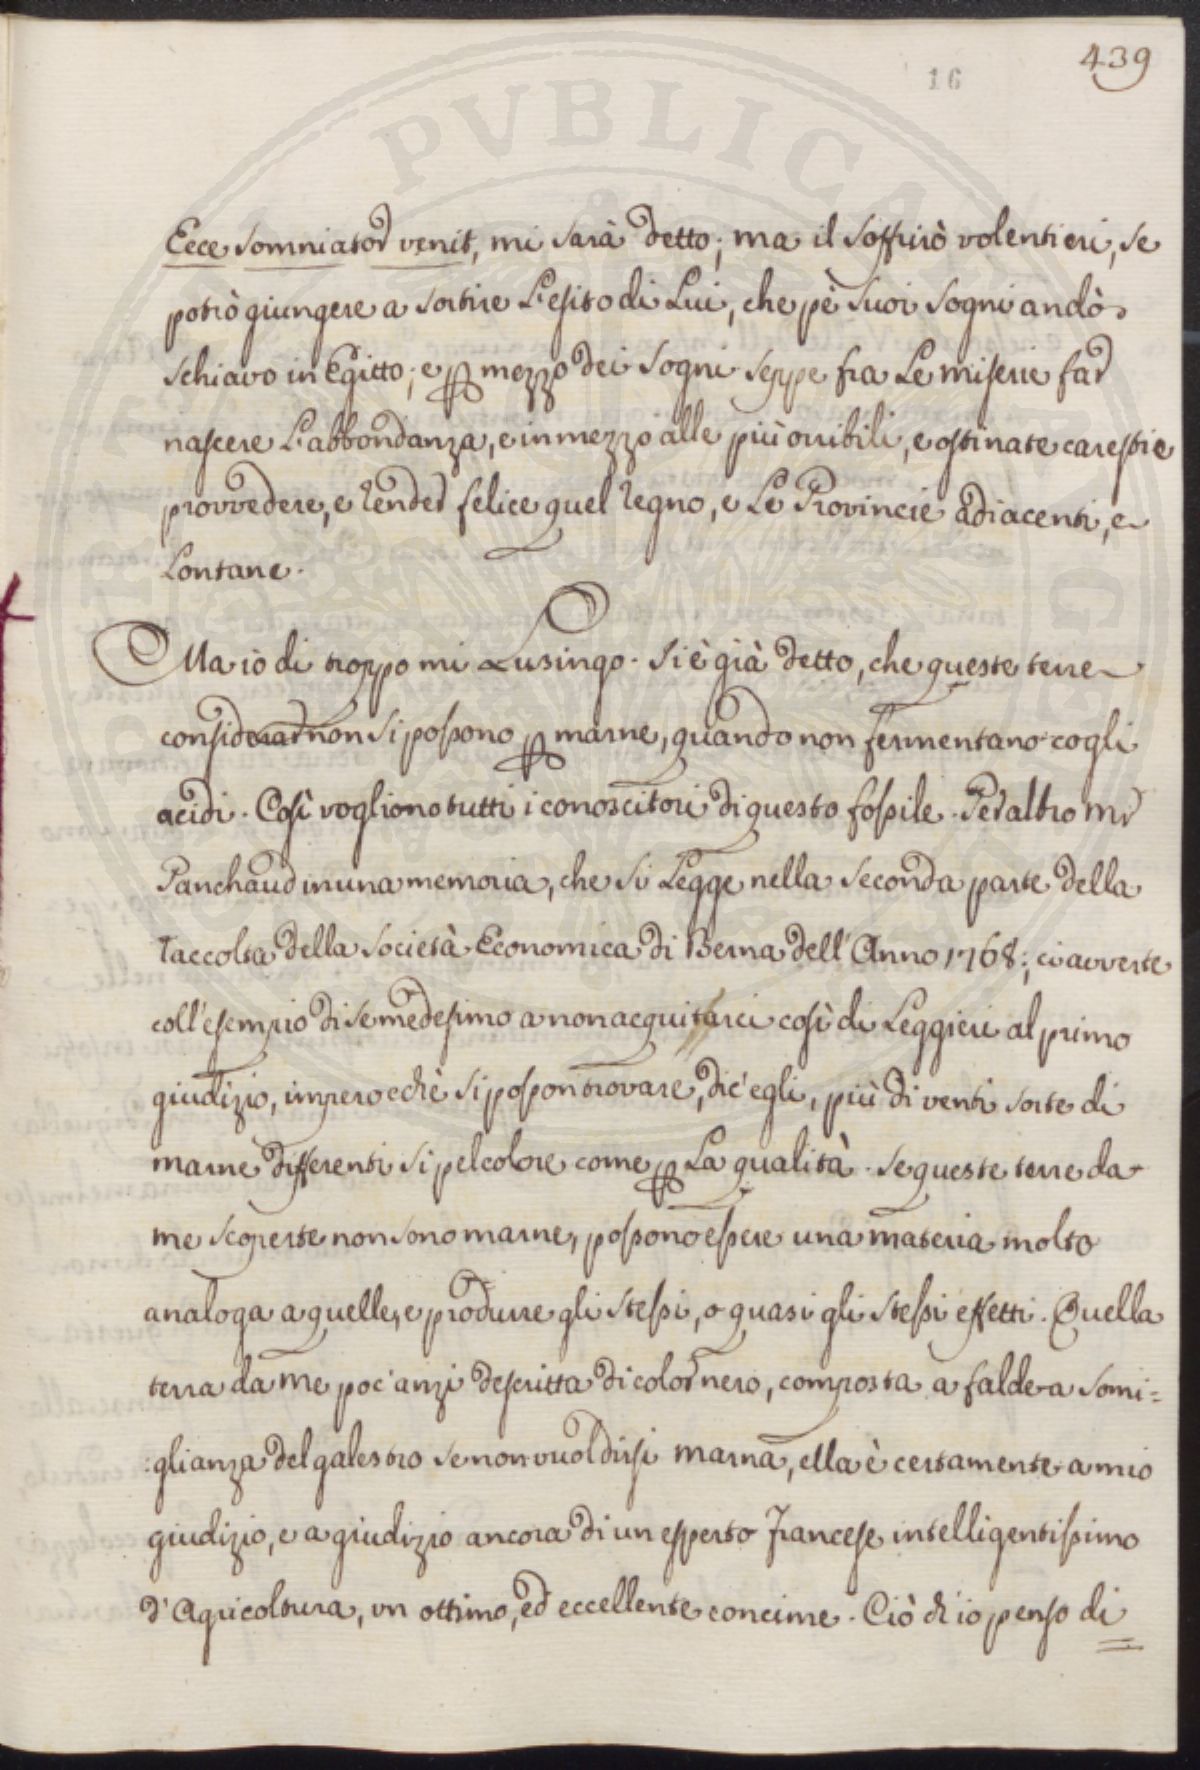 439
16
Ecce somniator venit, mi sarà detto; ma il soffrirò volentieri, se
potrò giungere a sortire l'esito di Lui, che pe' suoi sogni andò
schiavo in Egitto; e p mezzo dei sogni seppe fra le miserie far
nascere l'abbondanza, e in mezzo alle più orribili, e ostinate carestie
provvedere, e render felice quel regno, e le Provincie adiacenti, e
lontane.
Ma io di troppo mi lusingo. Si è già detto, che queste terre
considerar non si possono p marne, quando non fermentano cogli
acidi. Così vogliono tutti i conoscitori di questo fossile. Per altro Mr
Panchaud in una memoria, che si legge nella seconda parte della
raccolta della Società Economica di Berna dell'Anno 1768; ci avverte
coll'esempio di se medesimo a non acquitarci così di leggieri al primo
giudizio, imperocchè si posson trovare, dic'egli, più di venti sorte di
marne differenti si pel colore come p la qualità. Se queste terre da
me scoperte non sono marne, possono essere una materia molto
analoga a quelle, e produrre gli stessi, o quasi gli stessi effetti. Quella
terra da me poc'anzi descritta di color nero, composta a falde a somi=
:glianza del galestro se non vuol dirsi marna, ella è certamente a mio
giudizio, e a giudizio ancora di un esperto Francese intelligentissimo
d'Agricoltura, un ottimo, ed eccellente concime. Ciò ch'io penso di
PVBLICAE